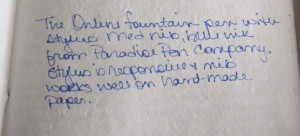 The Online fountain pen with
stylus med nib, blue ink
from Paradise Pen Company.
Stylus is responsive & nib
works well on hand-made
paper.